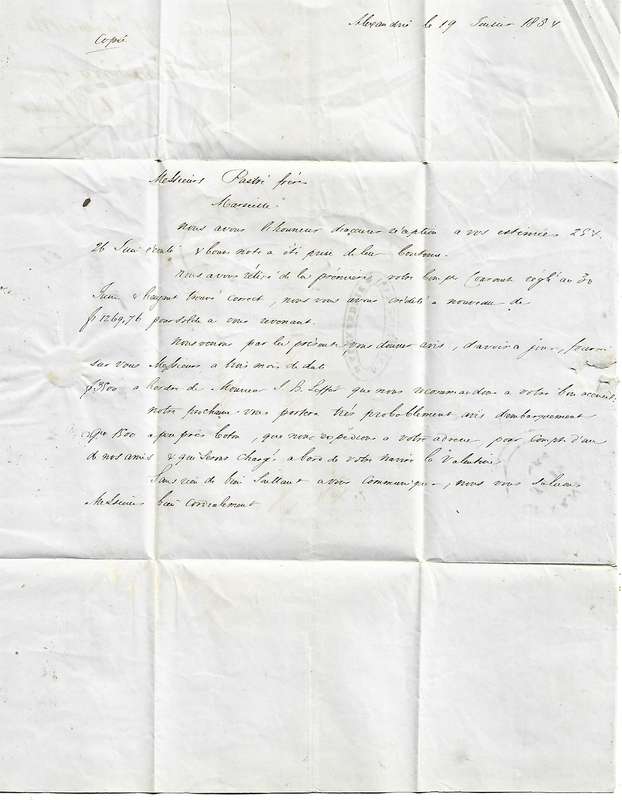 Alexandrie le 19 1854
Copie
Messieurs Pastré frères
Marseille
Nous avons l'honneur d'accuser réception a vos estimées 25 &
26 Juin & bonne note a été prise de leur Contenu.
Nous avons relevé de la première, votre Compte Courant réglé au 30
Juin & l'ayant trouvé correct, nous vous avons crédité a nouveau de
f 1269,76 pour solde a vous revenant.
Nous venons par la présente, vous donner avis, d'avoir a jour, fourni
sur vous Messieurs a trois mois de date
f 3500 a l'ordre de Monsieur J. B. que nous recommandons a votre bon accueil.
notre prochaine vous portera très probablement avis d'embarquement
1500 a peu près Coton, que nous expédions a votre adresse, pour compte d'un
de nos amis & qui seront chargé a bord de votre navire le Valentine
Sans rien de bien Saillant a vous communiquer, nous vous saluons
Messieurs bien cordialement